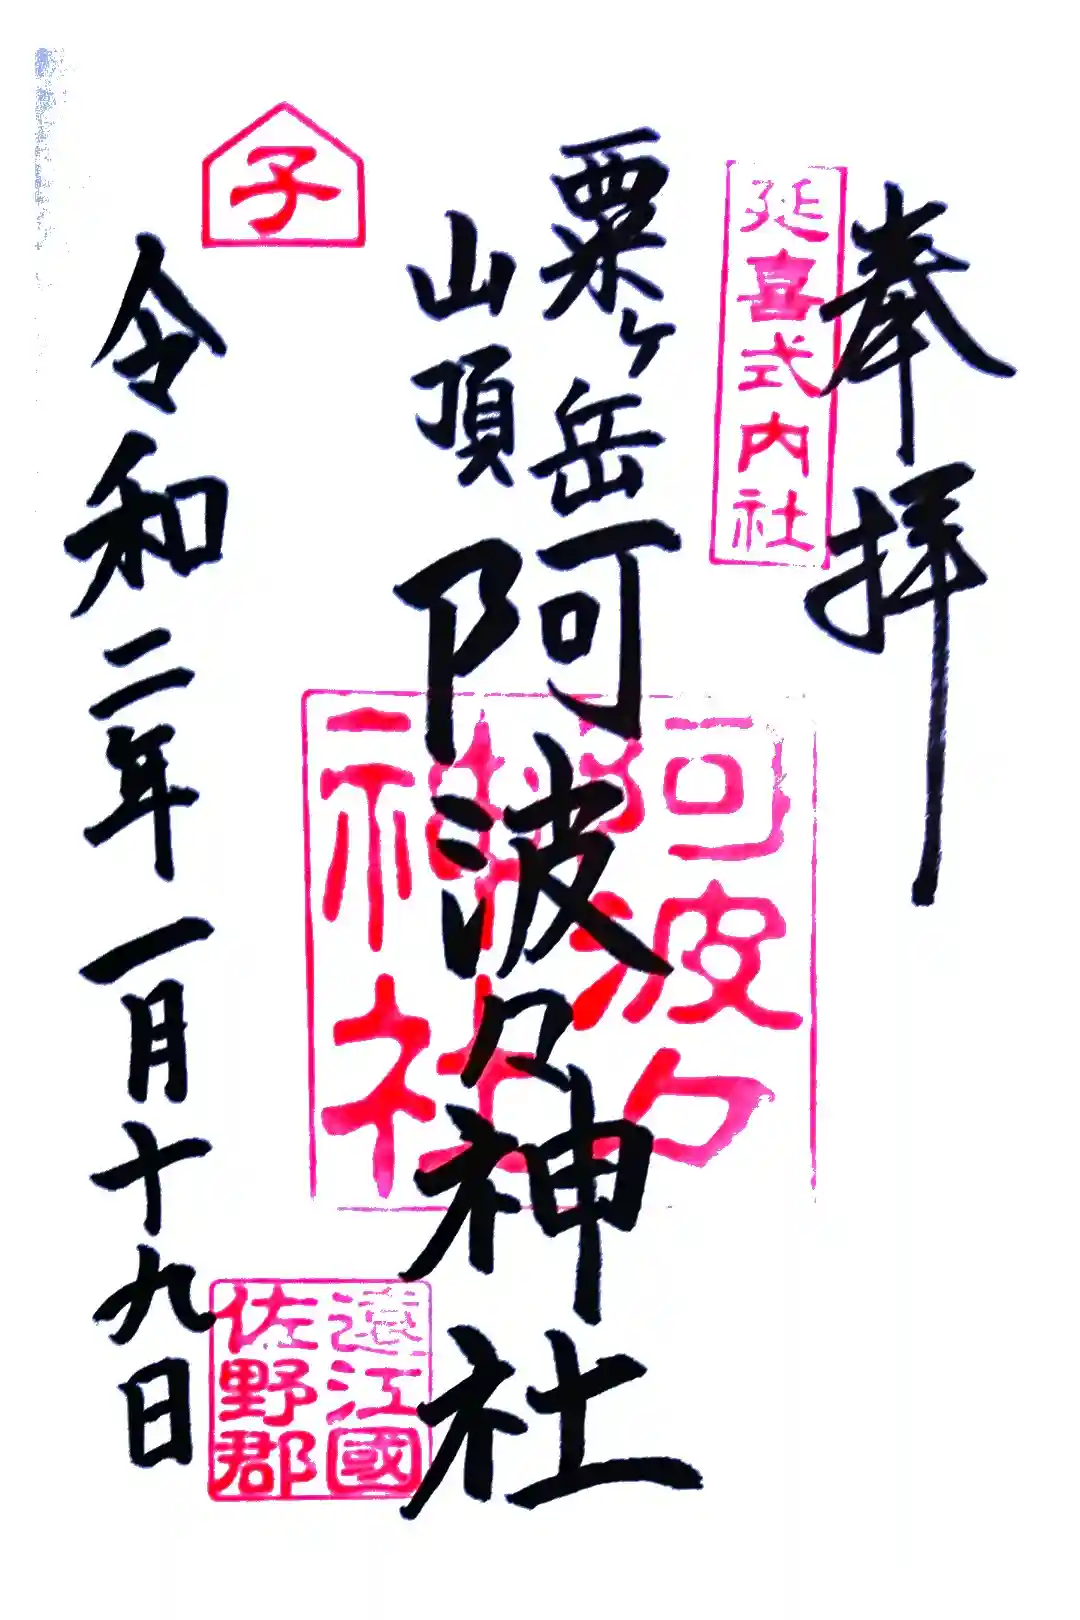 奉拝
延喜式内社
粟ヶ岳
山頂
阿波々神社
阿波々
神社
子
令和二年一月十九日
遠江國
佐野郡